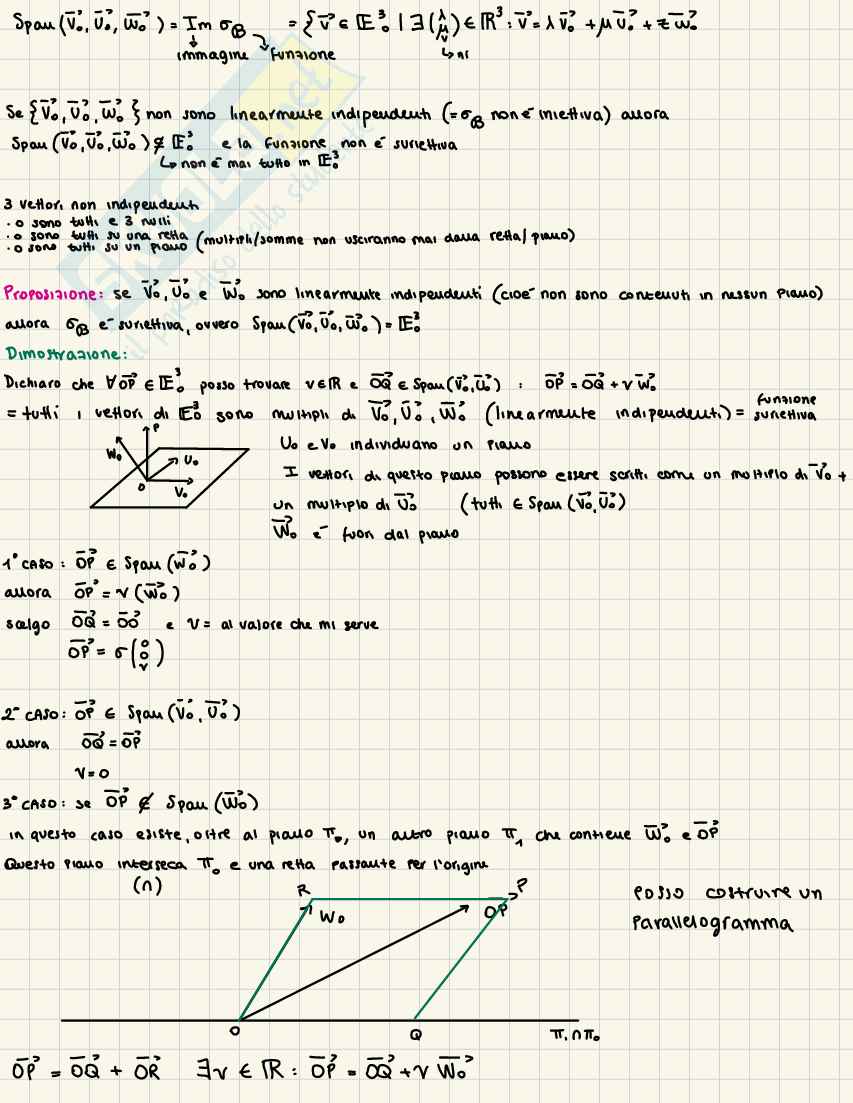 Span(v̄₀, ū₀, w̄₀) = Im σ_B = {v̄ ∈ 𝔼³₀ | ∃(λ μ ν) ∈ ℝ³ : v̄ = λv̄₀ + μū₀ + z w̄₀
immagine funzione
↳ ni
Se {v̄₀, ū₀, w̄₀} non sono linearmente indipendenti (= σ_B non è iniettiva) allora
Span(v̄₀, ū₀, w̄₀) ⊄ 𝔼³₀ e la funzione non è suriettiva
↳ non è mai tutto in 𝔼³₀
3 vettori non indipendenti
· o sono tutti e 3 nulli
· o sono tutti su una retta
· o sono tutti su un piano (multipli/somme non usciranno mai dalla retta/piano)
Proposizione: se v̄₀, ū₀ e w̄₀ sono linearmente indipendenti (cioè non sono contenuti in nessun piano)
allora σ_B è suriettiva, ovvero Span(v̄₀, ū₀, w̄₀) = 𝔼³₀
Dimostrazione:
Dichiaro che ∀OP ∈ 𝔼³₀ posso trovare ν ∈ ℝ e OQ ∈ Span(v̄₀, ū₀) : OP = OQ + ν w̄₀
= tutti i vettori di 𝔼³₀ sono multipli di v̄₀, ū₀, w̄₀ (linearmente indipendenti) = funzione suriettiva
P
W₀
U₀
O
V₀
U₀ e V₀ individuano un piano
I vettori di questo piano possono essere scritti come un multiplo di v̄₀ +
un multiplo di ū₀ (tutti ∈ Span(v̄₀, ū₀)
w̄₀ è fuori dal piano
1° CASO: OP ∈ Span(w̄₀)
allora OP = ν(w̄₀)
scelgo OQ = OO e ν = al valore che mi serve
OP = σ(0 0 ν)
2° CASO: OP ∈ Span(v̄₀, ū₀)
allora OQ = OP
ν = 0
3° CASO: se OP ∉ Span(w̄₀)
in questo caso esiste, oltre al piano π₀, un altro piano π₁ che contiene w̄₀ e OP
Questo piano interseca π₀ e una retta passante per l'origine
(∩)
R
W₀
P
OP
O
Q
π₁∩π₀
Posso costruire un
Parallelogramma
OP = OQ + OR ∃ν ∈ ℝ : OP = OQ + ν w̄₀